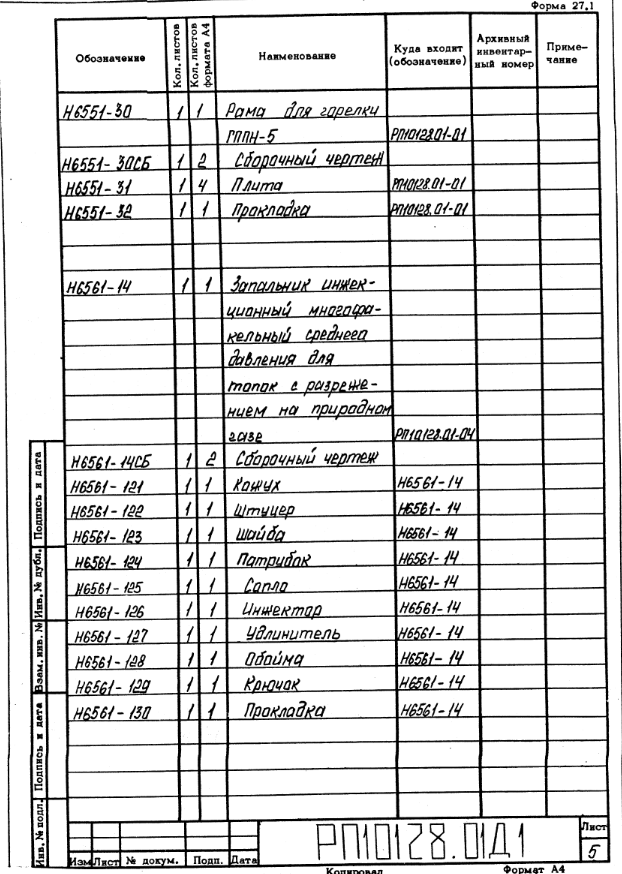 Форма 27.1
Обозначение Кол. листов Кол. листов формата А4 Наименование Куда входит (обозначение) Архивный инвентар-ный номер Приме-чание
Н6551-30 1 1 Рама для горелки
ГППН-5 РП10128.01-01
Н6551-30СБ 1 2 Сборочный чертеж
Н6551-31 1 4 Плита РП10128.01-01
Н6551-32 1 1 Прокладка РП10128.01-01
Н6561-14 1 1 Запальник инжек-
ционный многофа-
кельный среднего
давления для
топок с разреже-
нием на природном
газе РП10128.01-04
Н6561-14СБ 1 2 Сборочный чертеж
Н6561-121 1 1 Кожух Н6561-14
Н6561-122 1 1 Штуцер Н6561-14
Н6561-123 1 1 Шайба Н6561-14
Н6561-124 1 1 Патрубок Н6561-14
Н6561-125 1 1 Сопло Н6561-14
Н6561-126 1 1 Инжектор Н6561-14
Н6561-127 1 1 Удлинитель Н6561-14
Н6561-128 1 1 Обойма Н6561-14
Н6561-129 1 1 Крючок Н6561-14
Н6561-130 1 1 Прокладка Н6561-14
Инв. № подл. Подпись и дата Взам. инв. № Инв. № дубл. Подпись и дата
Изм Лист № докум. Подп. Дата
РП10128.01Д1
Лист
5
Копировал Формат А4